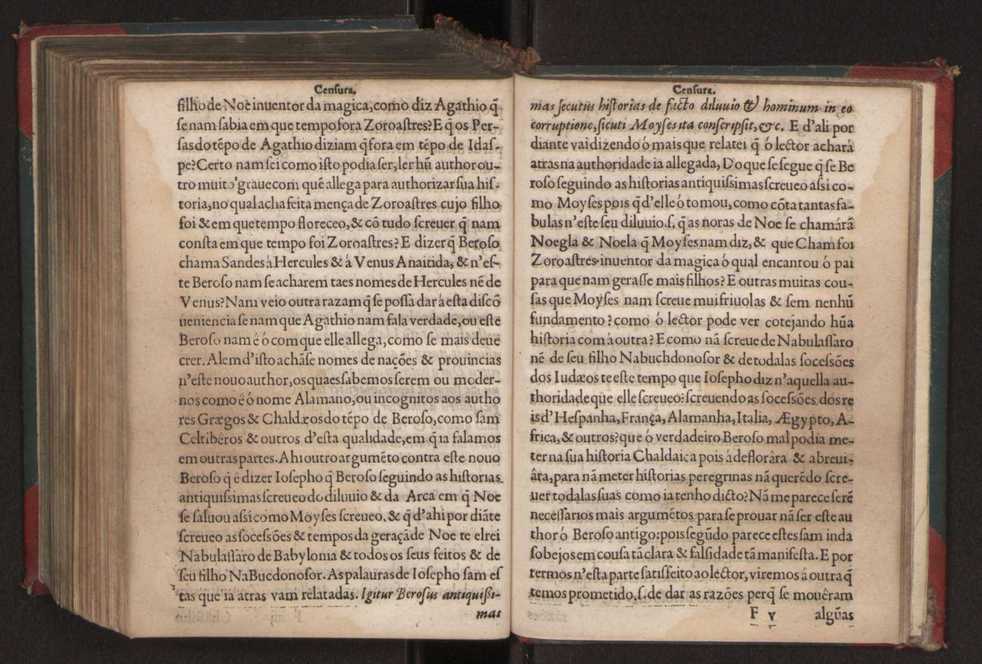 Censura.
filho de Noè inuentor da magica, como diz Agathio q̃
se nam sabia em que tempo fora Zoroastres? E q̃ os Per-
sas do tẽpo de Agathio diziam q̃ fora em tẽpo de Idas-
pe? Certo nam sei como isto podia ser, ler hũ author ou-
tro muito graue com quẽ allega para authorizar sua his-
toria, no qual acha feita mença de Zoroastres cujo filho
foi & em que tempo floreceo, & cõ tudo screuer q̃ nam
consta em que tempo foi Zoroastres? E dizer q̃ Beroso
chama Sandes à Hercules & à Venus Anaitida, & n'es-
te Beroso nam se acharem taes nomes de Hercules nẽ de
Venus? Nam veio outra razam q̃ se possa dar à esta discõ
ueniencia se nam que Agathio nam fala verdade, ou este
Beroso nam é ó com que elle allega, como se mais deue
crer. Alem d'isto achãse nomes de nações & prouincias
n'este nouo author, os quaes sabemos serem ou moder-
nos como é ó nome Alamano, ou incognitos aos autho
res Grægos & Chaldæos do tẽpo de Beroso, como sam
Celtiberos & outros d'esta qualidade, em q̃ ia falamos
em outras partes. A hi outro argumẽto contra este nouo
Beroso q̃ é dizer Iosepho q̃ Beroso seguindo as historias
antiquissimas screueo do diluuio & da Arca em q̃ Noe
se saluou assi como Moyses screueo. & q̃ d'ahi por diãte
screueo as socesões & tempos da geraçã de Noe te elrei
Nabulassàro de Babylonia & todos os seus feitos & de
seu filho NaBucdonosor. As palauras de Iosepho sam es
tas que ia atras vam relatadas. Igitur Berosus antiquissi-
mas
Censura.
mas secutus historias de facto diluuio & hominum in eo
corruptione, sicuti Moyses ita conscripsit, &c. E d'ali por
diante vai dizendo ó mais que relatei q̃ ó lector achará
atras na authoridade ia allegada, Do que se segue q̃ se Be
roso seguindo as historias antiquissimas screueo assi co-
mo Moyses pois q̃ d'elle ó tomou, como cõta tantas fa-
bulas n'este seu diluuio. s, q̃ as noras de Noe se chamárã
Noegla & Noela q̃ Moyses nam diz, & que Cham foi
Zoroastres inuentor da magica ó qual encantou ó pai
para que nam gerasse mais filhos? E outras muitas cou-
sas que Moyses nam screue mui friuolas & sem nenhũ
fundamento? como ó lector pode ver cotejando hũa
historia com à outra? E como nã screue de Nabulassàro
nẽ de seu filho Nabuchdonosor & de todalas socessões
dos Iudæos te este tempo que Iosepho diz n'aquella au-
thoridade que elle screueo: screuendo as socesões dos re
is d'Hespanha, França, Alamanha, Italia, Ægypto, A-
frica, & outros? que ó verdadeiro Beroso mal podia me-
ter na sua historia Chaldaica pois à deflorâra & abreui-
âra, para nã meter historias peregrinas nã querẽdo scre-
uer todalas suas como ia tenho dicto? Nã me parece serẽ
necessarios mais argumẽtos para se prouar nã ser este au
thor ó Beroso antigo: pois segũdo parece estes sam inda
sobejos em cousa tã clara & falsidade tã manifesta. E por
termos n'esta parte satisfeito ao lector, viremos á outra q̃
temos prometido, s. de dar as razões perq̃ se mouêram
F v algũas